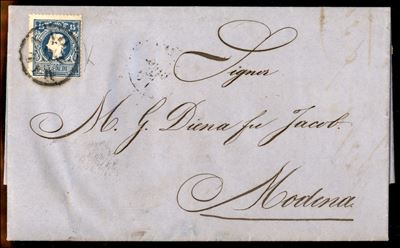 15 15
Signor
M. G. Diena fu Jacob.
Modena